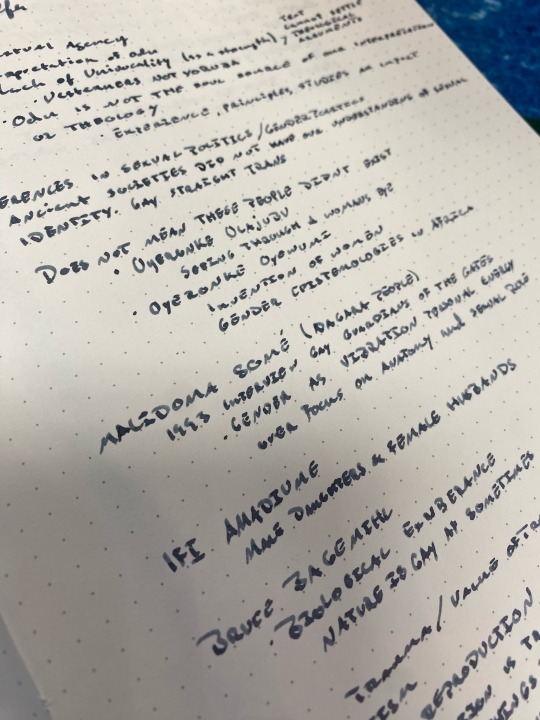 Agency
Interpretation of Odu
Lack of Univocality (as a strength)
Text
cannot settle
theological
arguments
· Westerners not Yoruba
· Odu is not the sole source of our interpretation
or theology
· Experience, principles, studies an impact
ERENCES IN SEXUAL POLITICS/GENDER
ANCIENT SOCIETIES DID NOT HAVE OUR UNDERSTANDING OF SEXUAL
IDENTITY. GAY STRAIGHT TRANS
DOES NOT MEAN THESE PEOPLE DIDN'T EXIST
· OYERONKE OLAJUBU
SEEING THROUGH A WOMANS EYE
· OYERONKE OYEWUMI
INVENTION OF WOMEN
GENDER EPISTEMOLOGIES IN AFRICA
MALIDOMA SOMÉ (DAGARA PEOPLE)
1993 INTERVIEW GAY GUARDIANS OF THE GATES
· GENDER AS VIBRATION TOWARD ENERGY
OVER FOCUS ON ANATOMY AND SEXUAL ROLE
IFI AMADIUME
MALE DAUGHTERS & FEMALE HUSBANDS
BRUCE BAGEMIHL
· BIOLOGICAL EXUBERANCE
NATURE IS GAY AF SOMETIMES
TRAUMA / VALUE OF TR
ISM
REPRODUCTION
ION IS TR
INGS